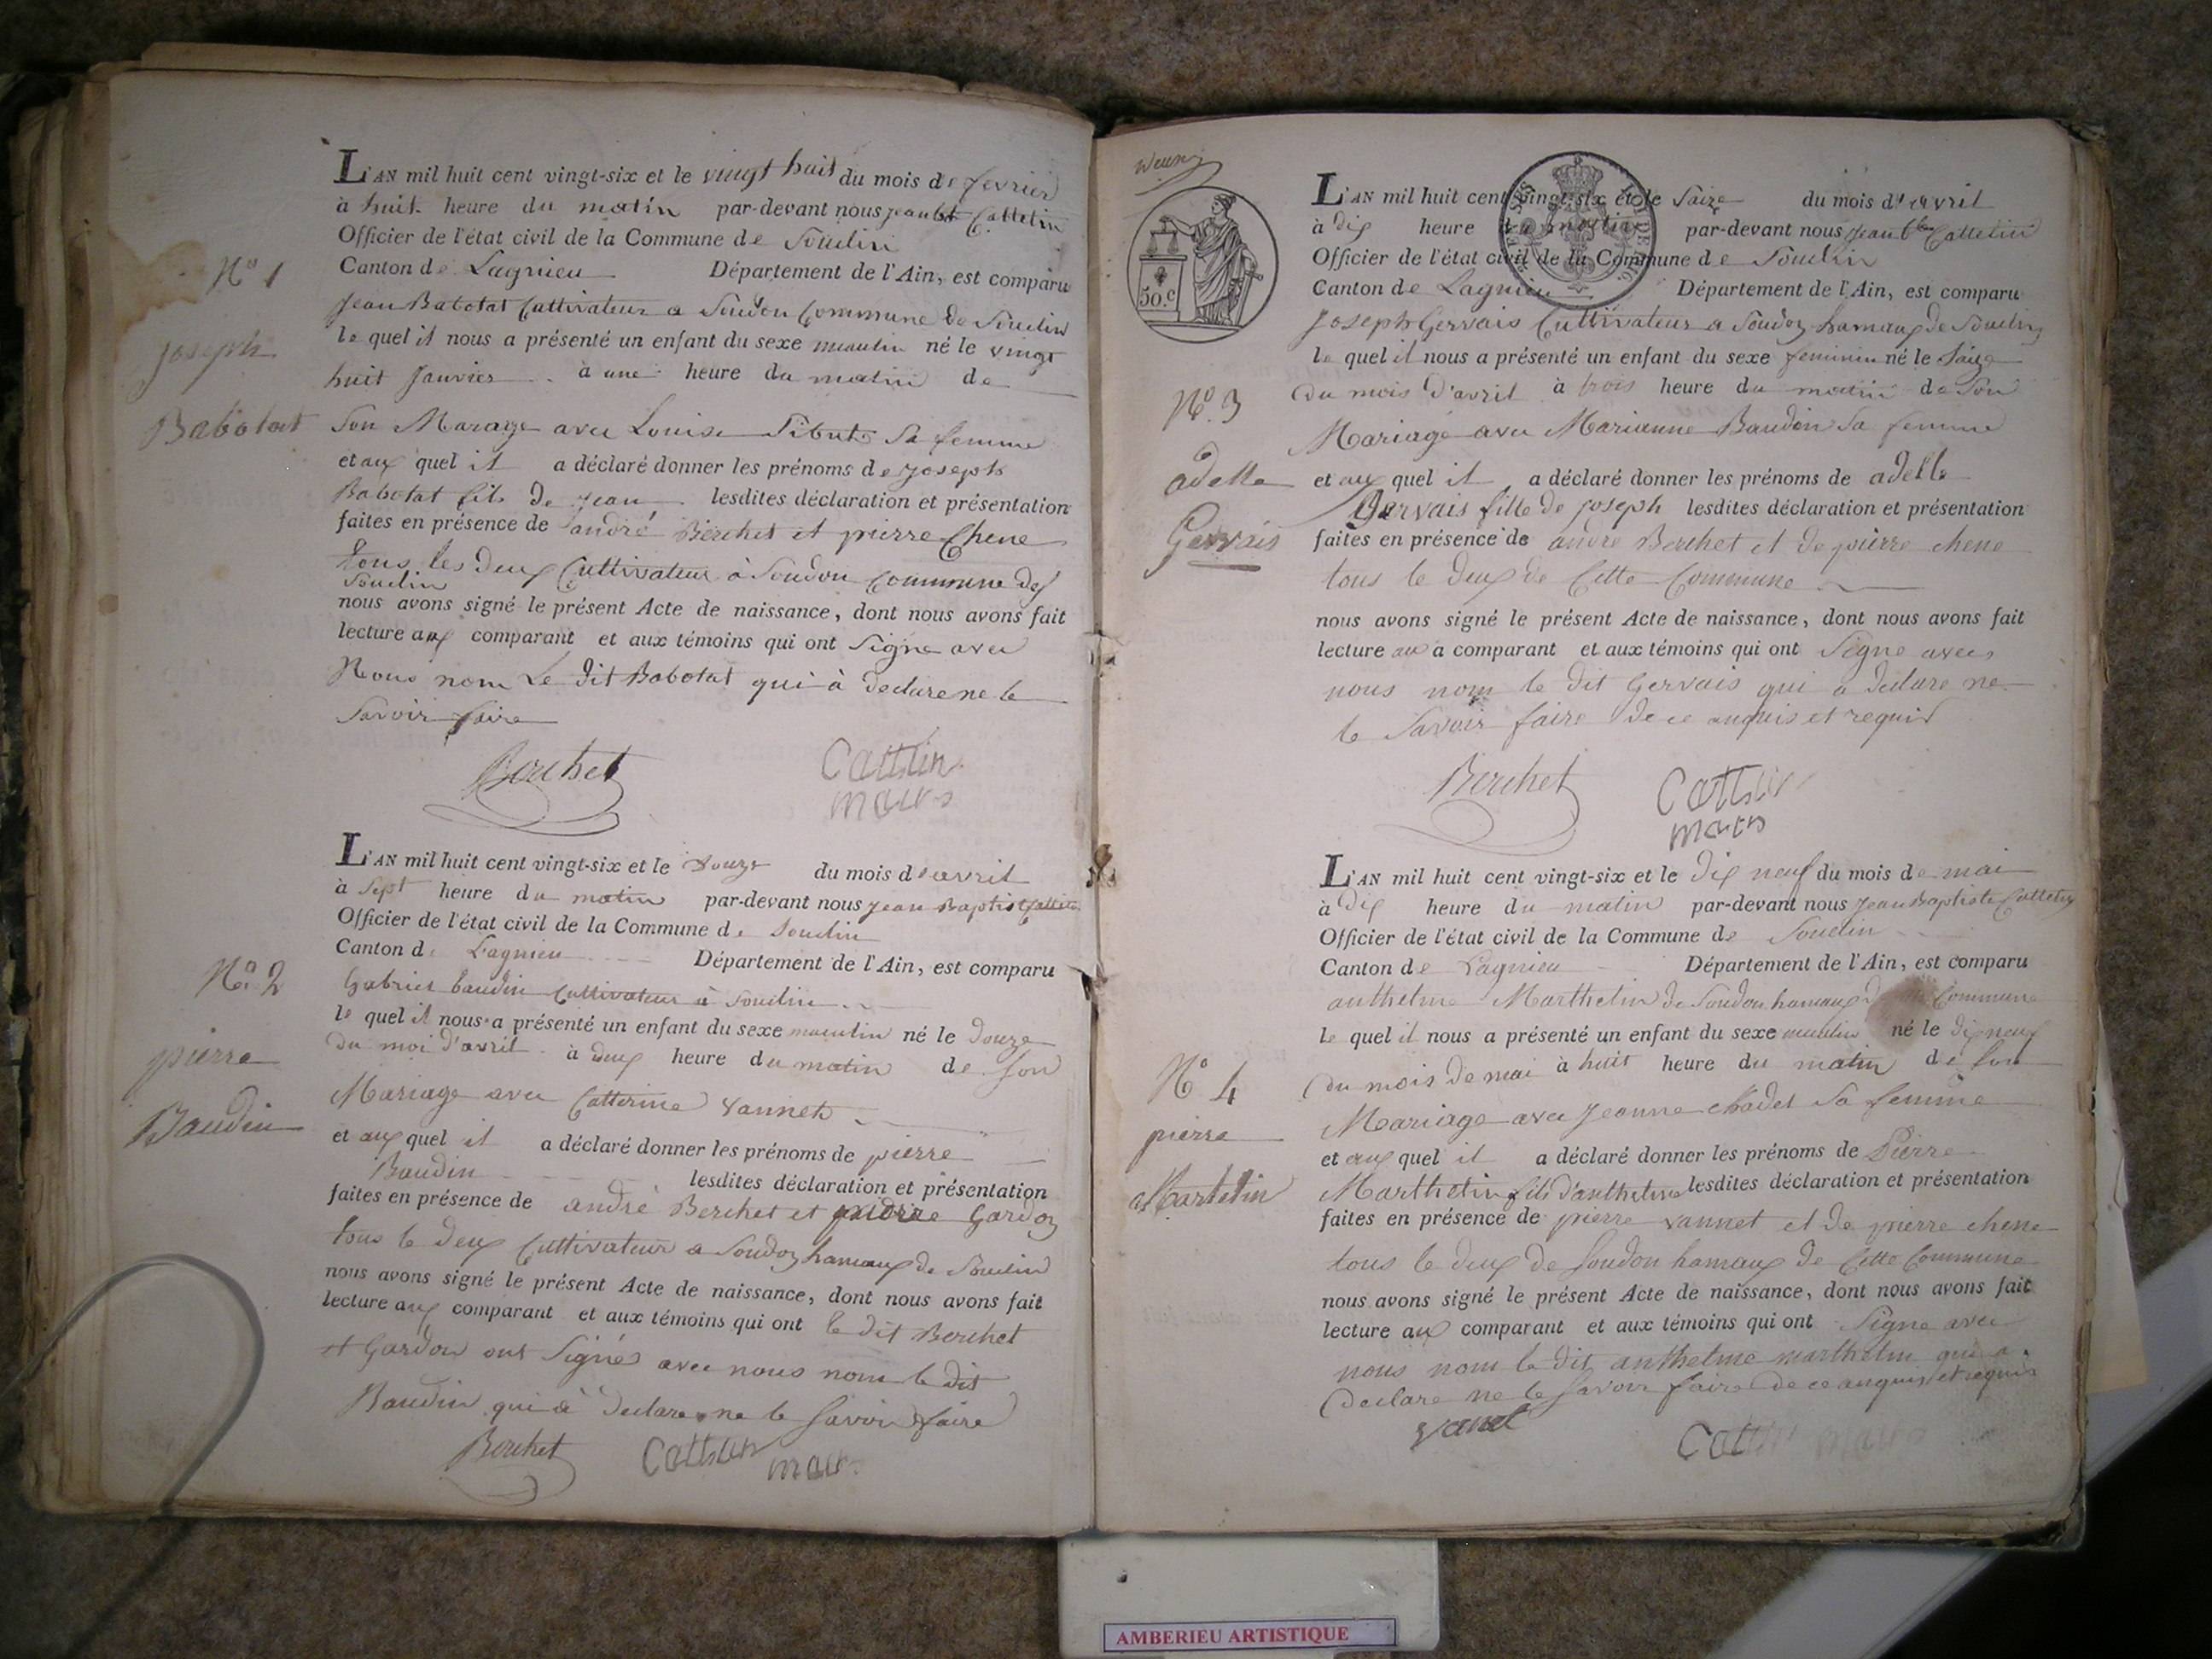 L'AN mil huit cent vingt-six et le vingt huit du mois de fevrier
à huit heure du matin par-devant nous jean bt Cattelin
Officier de l'état civil de la Commune de Souclin
Canton de Lagnieu Département de l'Ain, est comparu
Jean Babolat Cultivateur a Soudon Commune de Souclin
le quel il nous a présenté un enfant du sexe né le vingt
huit Janvier à une heure du matin de
Son Marage avec Louise Sibut Sa femme
et aux quel il a déclaré donner les prénoms de joseph
Babolat fils de jean lesdites déclaration et présentation
faites en présence de andré Berchet et pierre Chene
tous les deux Cultivateur à Soudon Commune de
Souclin
nous avons signé le présent Acte de naissance, dont nous avons fait
lecture aux comparant et aux témoins qui ont Signe avec
Nous nom Le dit Babolat qui à declare ne le
Savoir faire
Berchet Cattelin
maire
N° 1
joseph
Babolat
L'AN mil huit cent vingt-six et le douze du mois d'avril
à Sept heure du matin par-devant nous jean Baptiste Cattelin
Officier de l'état civil de la Commune de Souclin
Canton de Lagnieu Département de l'Ain, est comparu
Gabriel baudin Cultivateur à Souclin
le quel il nous a présenté un enfant du sexe masculin né le douze
du moi d'avril à deux heure du matin de son
Mariage avec Catterine vannet
et aux quel il a déclaré donner les prénoms de pierre
Baudin lesdites déclaration et présentation
faites en présence de andré Berchet et Gardon
tous le deux Cultivateur a Soudon hamaux de Souclin
nous avons signé le présent Acte de naissance, dont nous avons fait
lecture aux comparant et aux témoins qui ont le dit Berchet
et Gardon ont Signés avec nous nom le dit
Baudin qui à declare ne le Savoir faire
Berchet Cattelin maire
N° 2
pierre
Baudin
50.c
L'AN mil huit cent vingt-six et le Saize du mois d'avril
à dix heure du matin par-devant nous jean bte Cattelin
Officier de l'état civil de la Commune de Souclin
Canton de Lagnieu Département de l'Ain, est comparu
Joseph Gervais Cultivateur a Soudon hamaux de Souclin
le quel il nous a présenté un enfant du sexe feminin né le Saize
du mois d'avril à trois heure du matin de Son
Mariage avec Marianne Baudin Sa femme
et aux quel il a déclaré donner les prénoms de adelle
Gervais fille de joseph lesdites déclaration et présentation
faites en présence de andre Berchet et de pierre chene
tous le deux de Cette Commune
nous avons signé le présent Acte de naissance, dont nous avons fait
lecture au a comparant et aux témoins qui ont Signe avec
nous nom le dit Gervais qui a declare ne
le Savoir faire de ce anquis et requis
Berchet Cattelin
maire
N° 3
adelle
Gervais
L'AN mil huit cent vingt-six et le dix neuf du mois de mai
à dix heure du matin par-devant nous jean Baptiste Cattelin
Officier de l'état civil de la Commune de Souclin
Canton de Lagnieu Département de l'Ain, est comparu
anthelme Marthelin de Soudon hamaux Commune
le quel il nous a présenté un enfant du sexe masculin né le dix neuf
du mois de mai à huit heure du matin de Son
Mariage avec jeanne chadel Sa femme
et aux quel il a déclaré donner les prénoms de Pierre
Marthelin fils d'anthelme lesdites déclaration et présentation
faites en présence de pierre vannet et de pierre chene
tous le deux de Soudon hamaux de Cette Commune
nous avons signé le présent Acte de naissance, dont nous avons fait
lecture aux comparant et aux témoins qui ont Signe avec
nous nom le dit anthelme marthelin qui a
declare ne le Savoir faire de ce anquis et requis
vanet Cattelin maire
N° 4
pierre
Martelin
AMBERIEU ARTISTIQUE